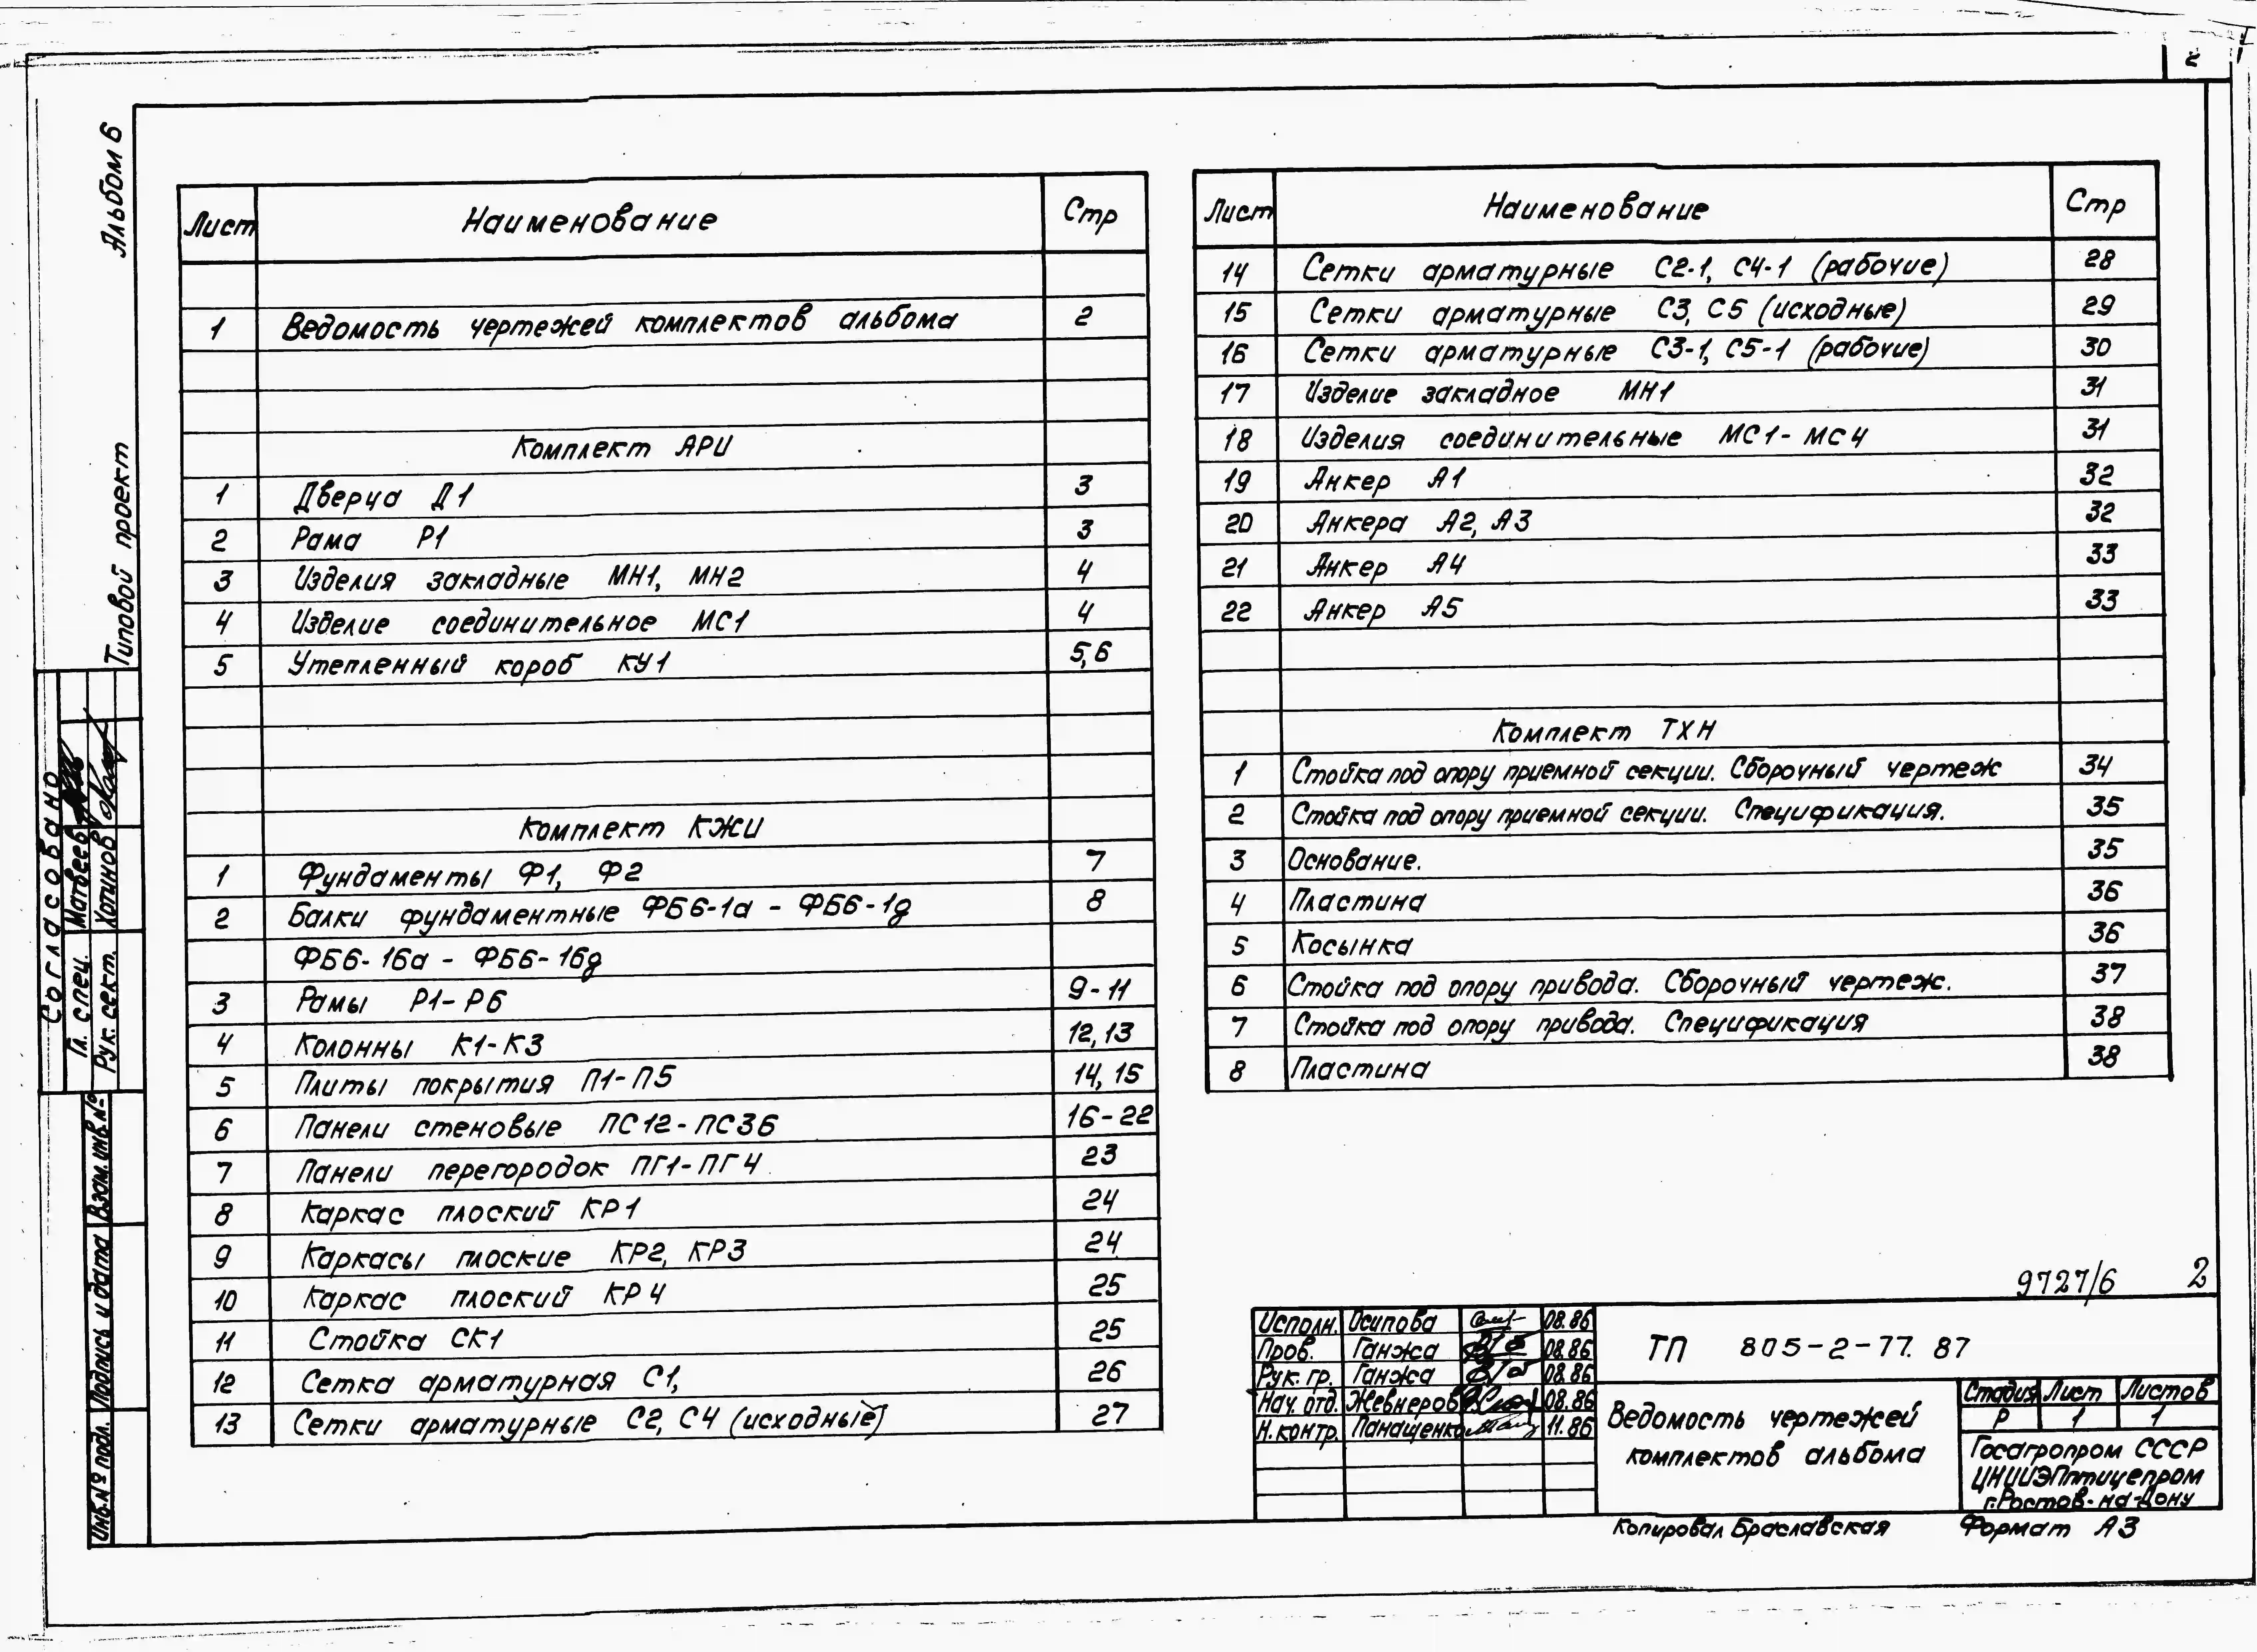 2
Альбом 6
Типовой проект
Лист Наименование Стр
1 Ведомость чертежей комплектов альбома 2
Комплект АРИ
1 Дверца Д1 3
2 Рама Р1 3
3 Изделия закладные МН1, МН2 4
4 Изделие соединительное МС1 4
5 Утепленный короб КУ1 5,6
Комплект КЖИ
1 Фундаменты Ф1, Ф2 7
2 Балки фундаментные ФБ6-1а - ФБ6-1д 8
ФБ6-16а - ФБ6-16д
3 Рамы Р1-Р6 9-11
4 Колонны К1-К3 12,13
5 Плиты покрытия П1-П5 14, 15
6 Панели стеновые ПС12-ПС36 16-22
7 Панели перегородок ПГ1-ПГ4 23
8 Каркас плоский КР1 24
9 Каркасы плоские КР2, КР3 24
10 Каркас плоский КР4 25
11 Стойка СК1 25
12 Сетка арматурная С1, 26
13 Сетки арматурные С2, С4 (исходные) 27
Лист Наименование Стр
14 Сетки арматурные С2-1, С4-1 (рабочие) 28
15 Сетки арматурные С3, С5 (исходные) 29
16 Сетки арматурные С3-1, С5-1 (рабочие) 30
17 Изделие закладное МН1 31
18 Изделия соединительные МС1-МС4 31
19 Анкер А1 32
20 Анкера А2, А3 32
21 Анкер А4 33
22 Анкер А5 33
Комплект ТХН
1 Стойка под опору приемной секции. Сборочный чертеж 34
2 Стойка под опору приемной секции. Спецификация. 35
3 Основание. 35
4 Пластина 36
5 Косынка 36
6 Стойка под опору привода. Сборочный чертеж. 37
7 Стойка под опору привода. Спецификация 38
8 Пластина 38
Согласовано
Гл. спец. Матвеев
Рук. сект. Хотинов
Взам. инв. №
Подпись и дата
Инв. № подл.
9727/6 2
Исполн. Осипова 08.86
Пров. Ганжа 08.86
Рук. гр. Ганжа 08.86
Нач. отд. Жевнеров 08.86
Н. контр. Панащенко 11.86
ТП 805-2-77. 87
Ведомость чертежей
комплектов альбома
Стадия Лист Листов
Р 1 1
Госагропром СССР
ЦНИИЭПптицепром
г. Ростов-на-Дону
Копировал Браславская Формат А3